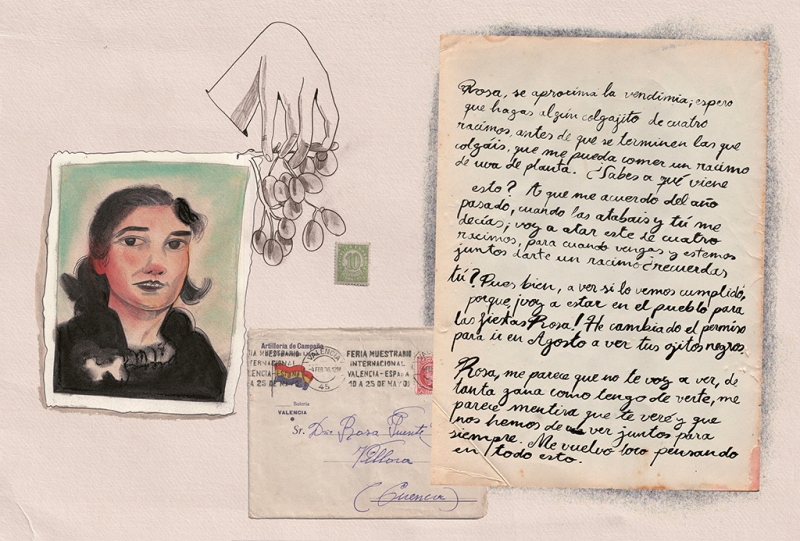 Rosa, se aprocima la vendimia, espero
que hagas algún colgajito de cuatro
racimos, antes de que se terminen las que
colgáis, que me pueda comer un racimo
de uva de planta. ¿Sabes a qué viene
esto? A que me acuerdo del año
pasado, cuando las atabais y tú me
decías; voy a atar este de cuatro
racimos, para cuando vengas y estemos
juntos darte un racimo ¿recuerdas
tú? Pues bien, a ver si lo vemos cumplido,
porque ¡voy a estar en el pueblo para
las fiestas Rosa! He cambiado el permiso
para ir en Agosto a ver tus ojitos negros.
Rosa, me parece que no te voy a ver, de
tanta gana como tengo de verte, me
parece mentira que te veré y que
nos hemos de ver juntos para
siempre. Me vuelvo loco pensando
en todo esto.
10
Artillería de Campaña
MUESTRARIO
INTERNACIONAL
VALENCIA-ESPAÑA
A 25 DE MAYO
VALENCIA
45
FERIA MUESTRARIO
INTERNACIONAL
VALENCIA-ESPAÑA
10 A 25 DE MAYO
Batería
VALENCIA
Sr. Dña Rosa Puente
Víllora
(Cuenca)